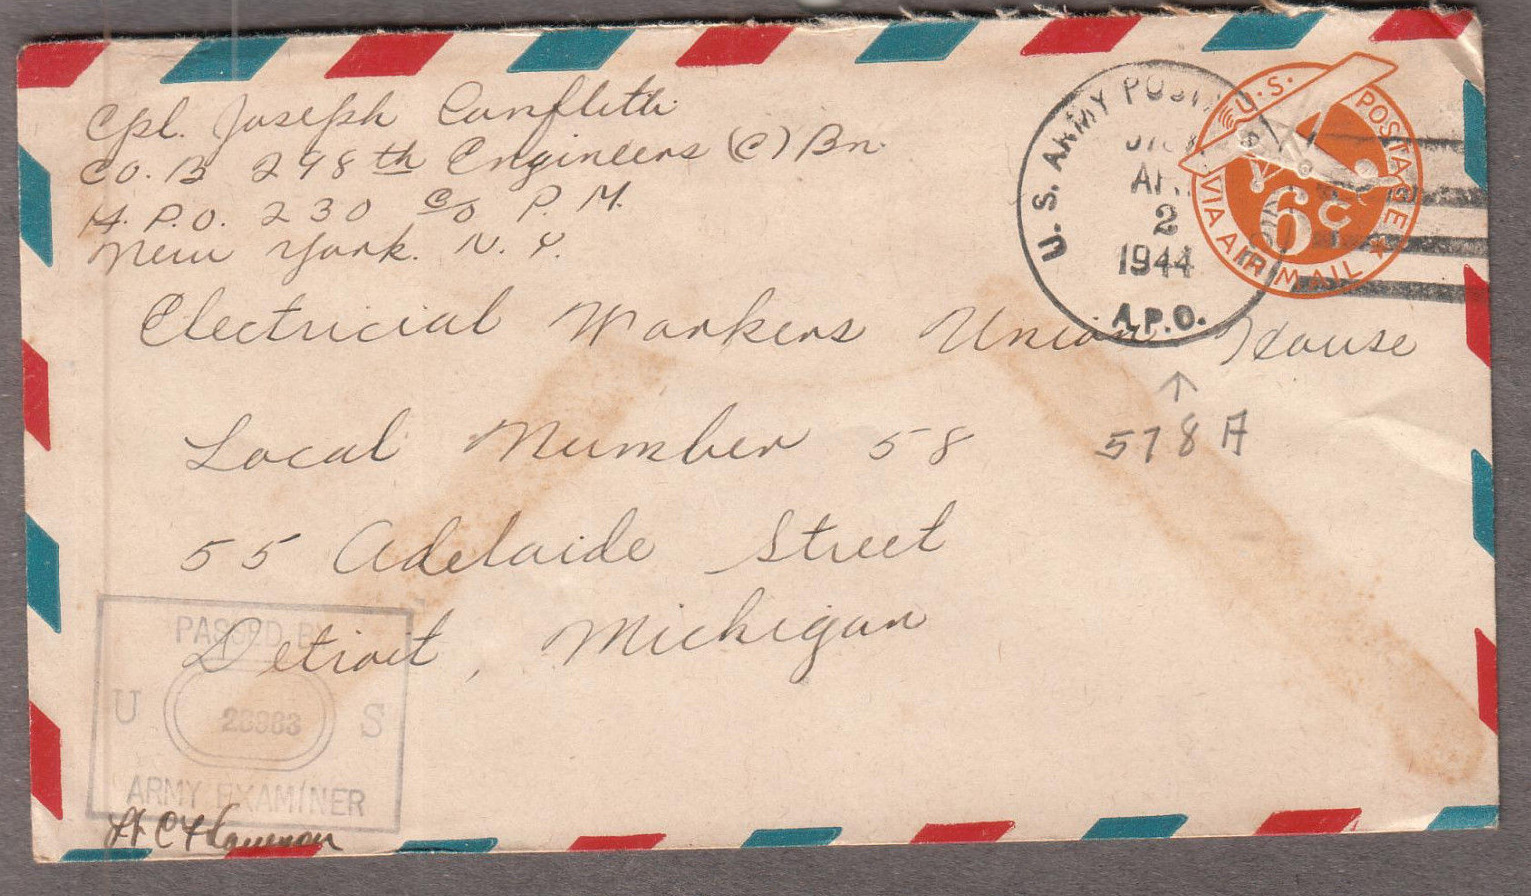 Cpl. Joseph Canfleth
Co. B 298th Engineers (C) Bn.
A. P.O. 230 c/o P. M.
New York. N. Y.
U. S. ARMY POSTAL
2
1944
A.P.O.
U.S. POSTAGE
6c
VIA AIR MAIL
Electricial Workers Union House
Local Number 58
578 A
55 Adelaide Street
Detroit, Michigan
PASSED BY
U S
ARMY EXAMINER